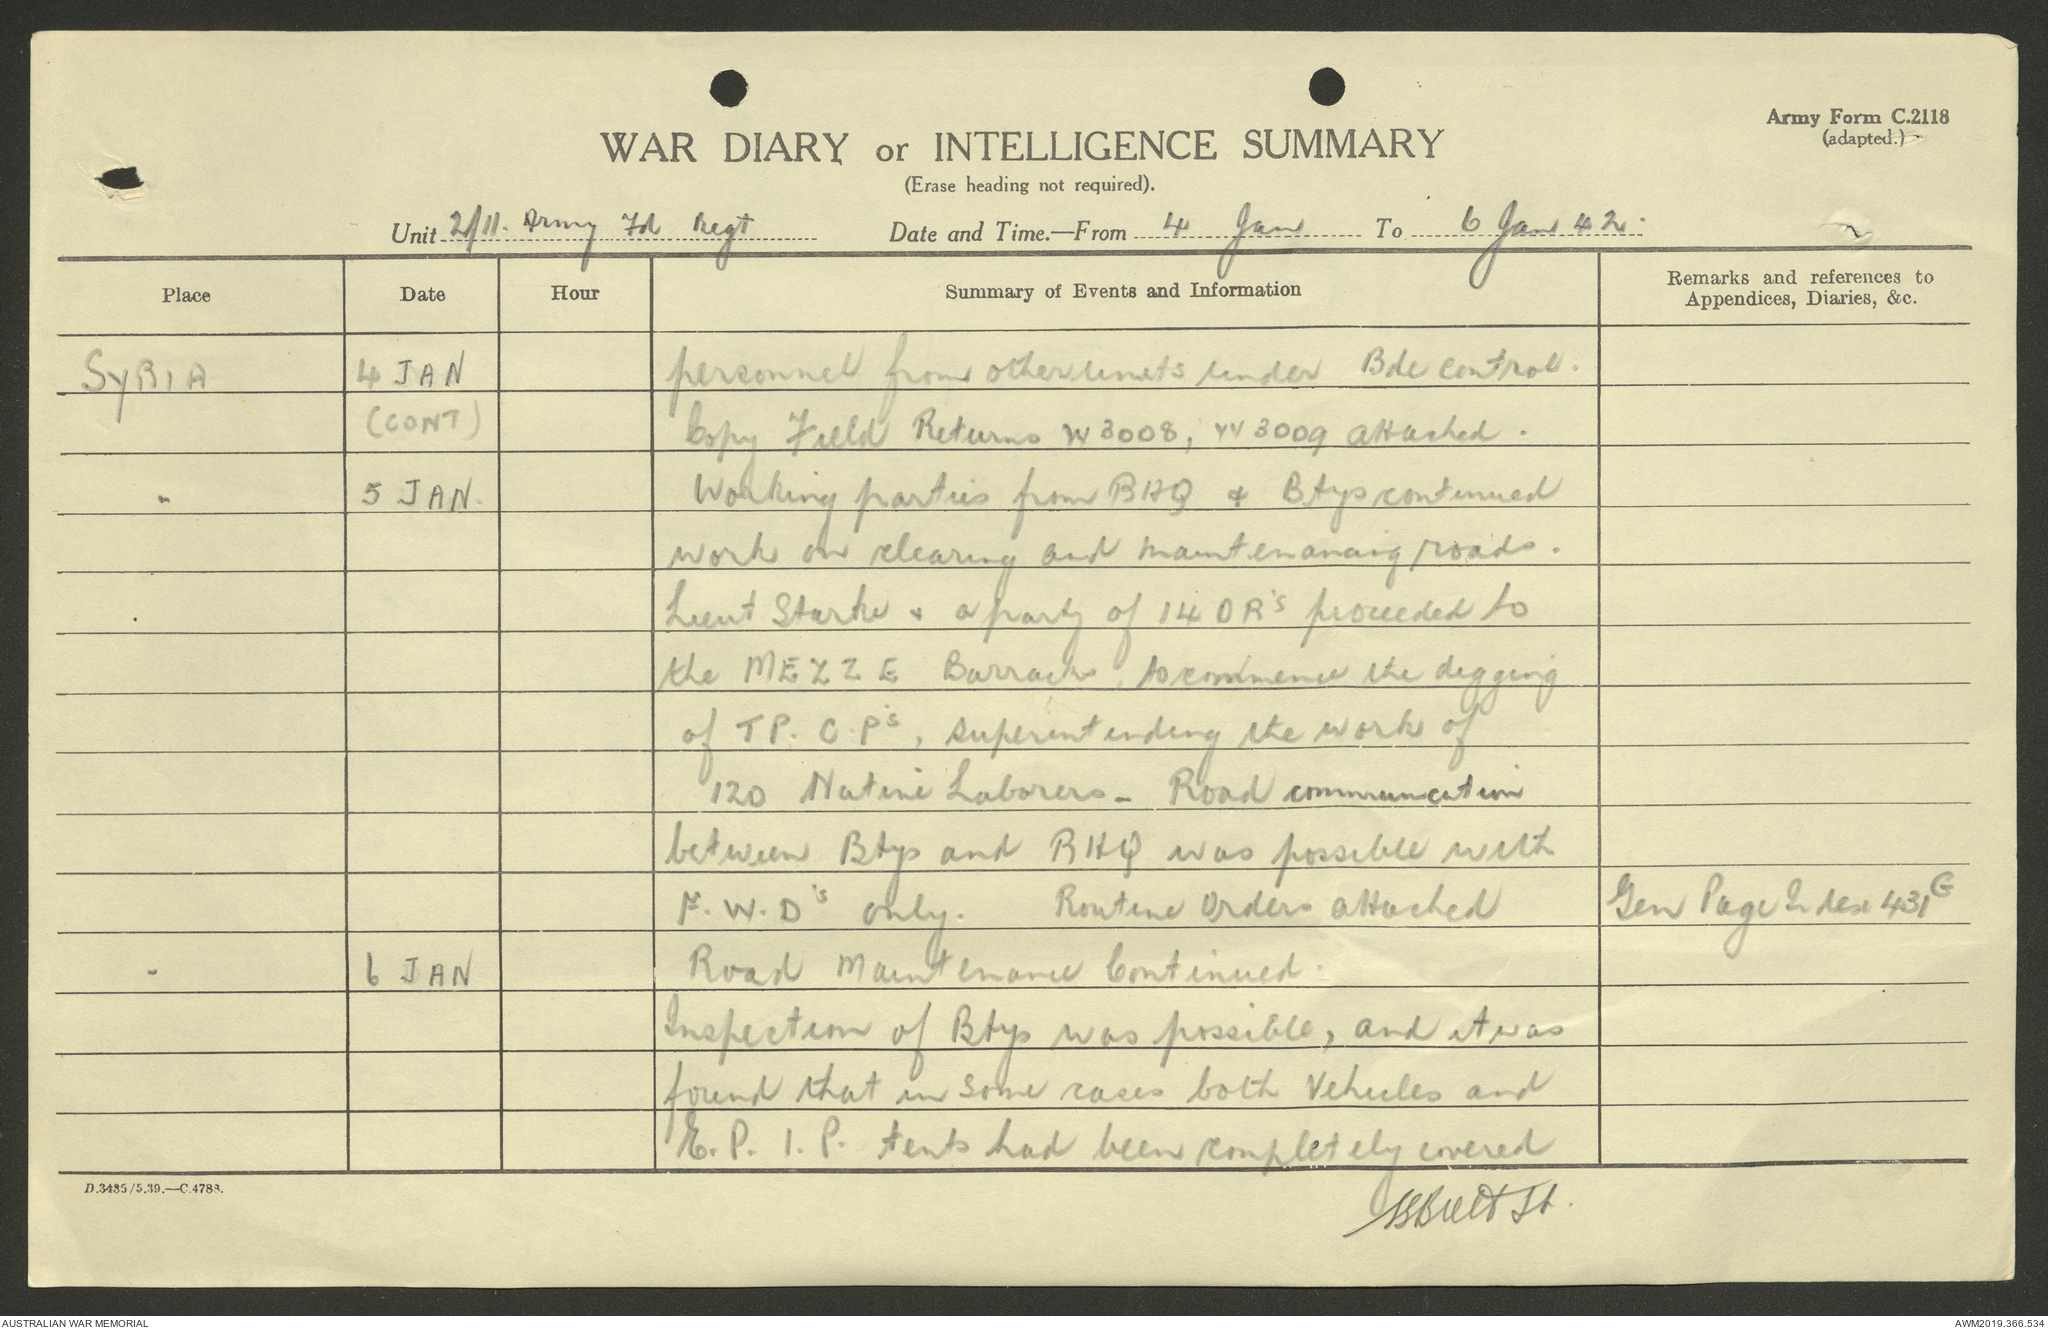 Army Form C.2118
(adapted.)
WAR DIARY or INTELLIGENCE SUMMARY
(Erase heading not required).
Unit 2/11. Army Fd Regt Date and Time.—From 4 Jan To 6 Jan 42.
Place Date Hour Summary of Events and Information Remarks and references to
Appendices, Diaries, &c.
SYRIA 4 JAN personnel from other units under Bde control.
(CONT) Copy Field Returns W3008, W3009 attached.
" 5 JAN. Working parties from RHQ & Btys continued
work on clearing and maintenancing roads.
Lieut Starke & a party of 14 OR's proceeded to
the MEZZE Barracks, to commence the digging
of TP. C.P's, superintending the work of
120 Native Laborers - Road communication
between Btys and RHQ was possible with
F.W.D's only. Routine Orders attached Gen Page Index 431G
" 6 JAN Road Maintenance Continued.
Inspection of Btys was possible, and it was
found that in some cases both Vehicles and
E.P.I.P. tents had been completely covered
D.3435/5.39.—C.4788.
Lt.
AUSTRALIAN WAR MEMORIAL
AWM2019.366.534